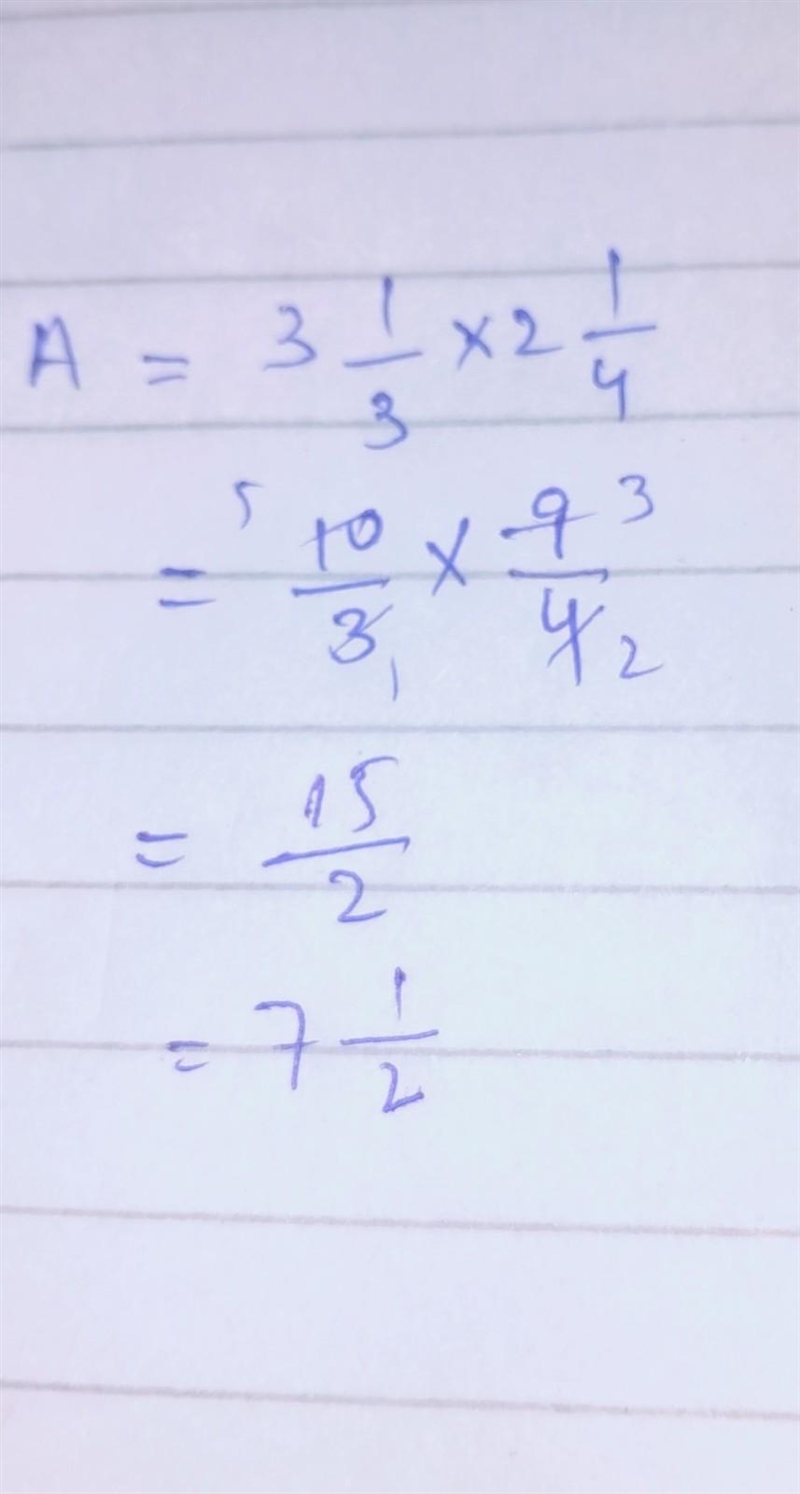 A = 3 1/3 × 2 1/4
= 5 10/3 1 × 9 3/4 2
= 15/2
= 7 1/2